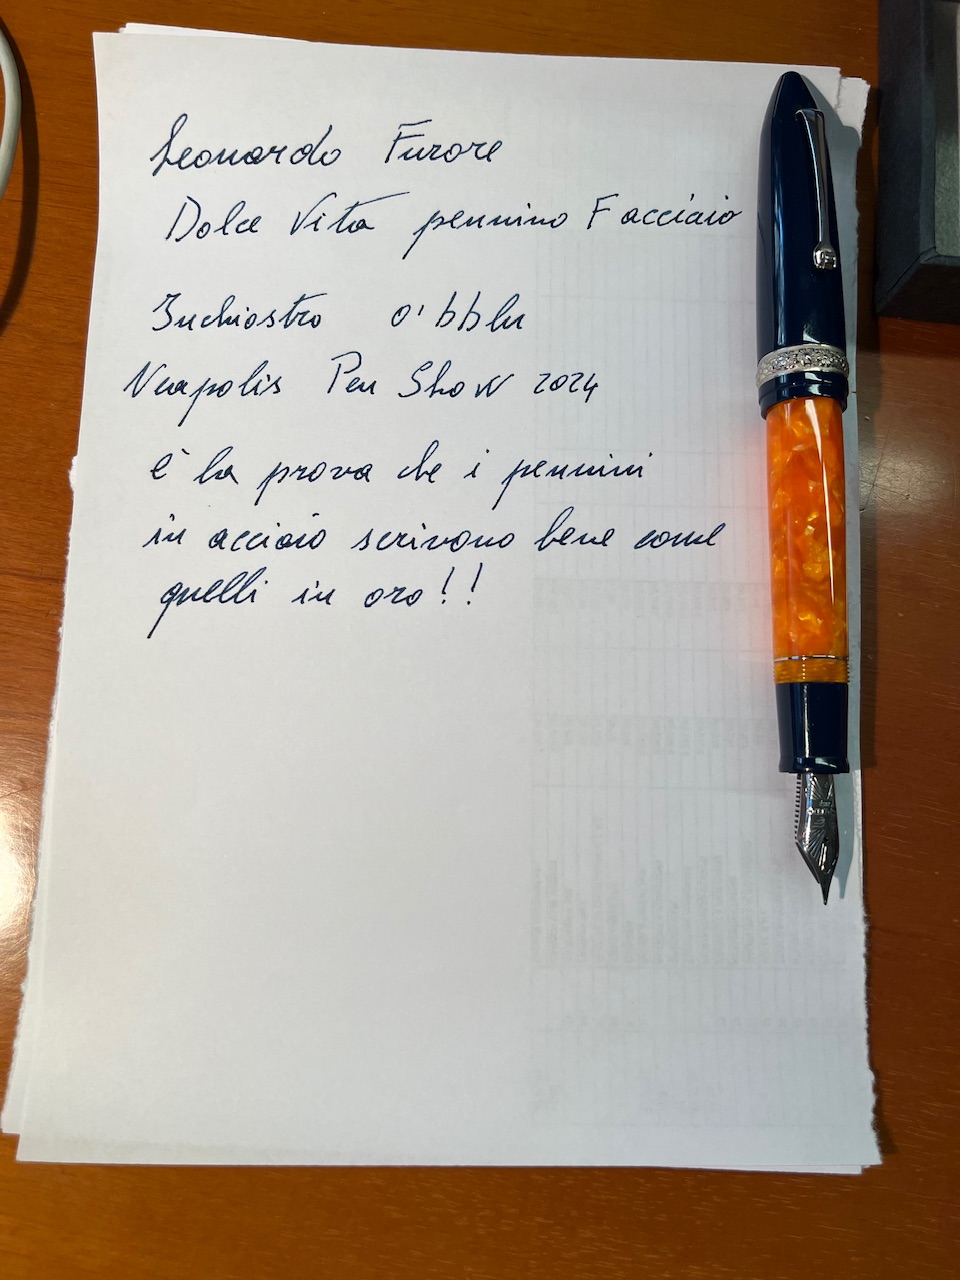 Leonardo Furore
Dolce Vita pennino F acciaio
Inchiostro o' bblu
Neapolis Pen Show 2024
è la prova che i pennini
in acciaio scrivono bene come
quelli in oro!!